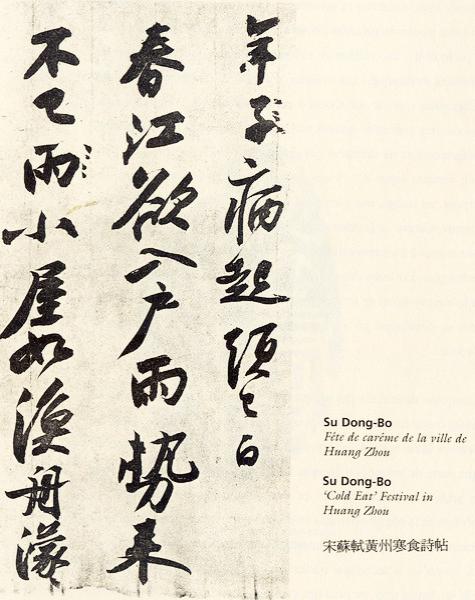 年子病起頭已白
春江欲入戶雨勢來
不已雨小屋如漁舟濛
Su Dong-Bo
Fête de carême de la ville de
Huang Zhou
Su Dong-Bo
‘Cold Eat’ Festival in
Huang Zhou
宋蘇軾黃州寒食詩帖